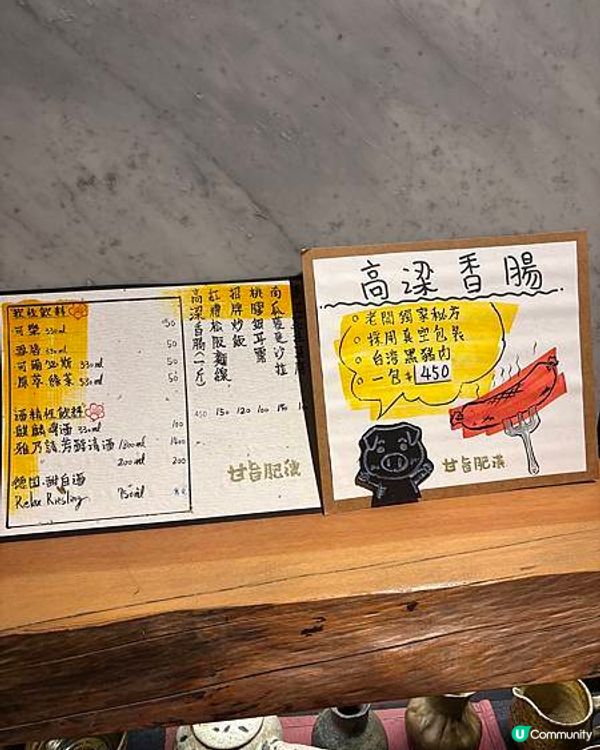 軟性飲料
可樂 330ml 50
雪碧 330ml 50
可爾必斯 330ml 50
原萃綠茶 330ml 50
酒精性飲料
麒麟啤酒 330ml 100
雅乃詩.芳醇清酒 1800ml 1400
200ml 200
德国.甜白酒
Relax Riesling 750ml
南瓜蔓越沙拉
桃膠銀耳露
招牌炒飯 120
紅糟松阪麵線 150
高梁香腸(一斤) 450
甘旨肥濃
高梁香腸
老闆獨家秘方
採用真空包裝
台灣黑豬肉
一包$450
甘旨肥濃
U Community